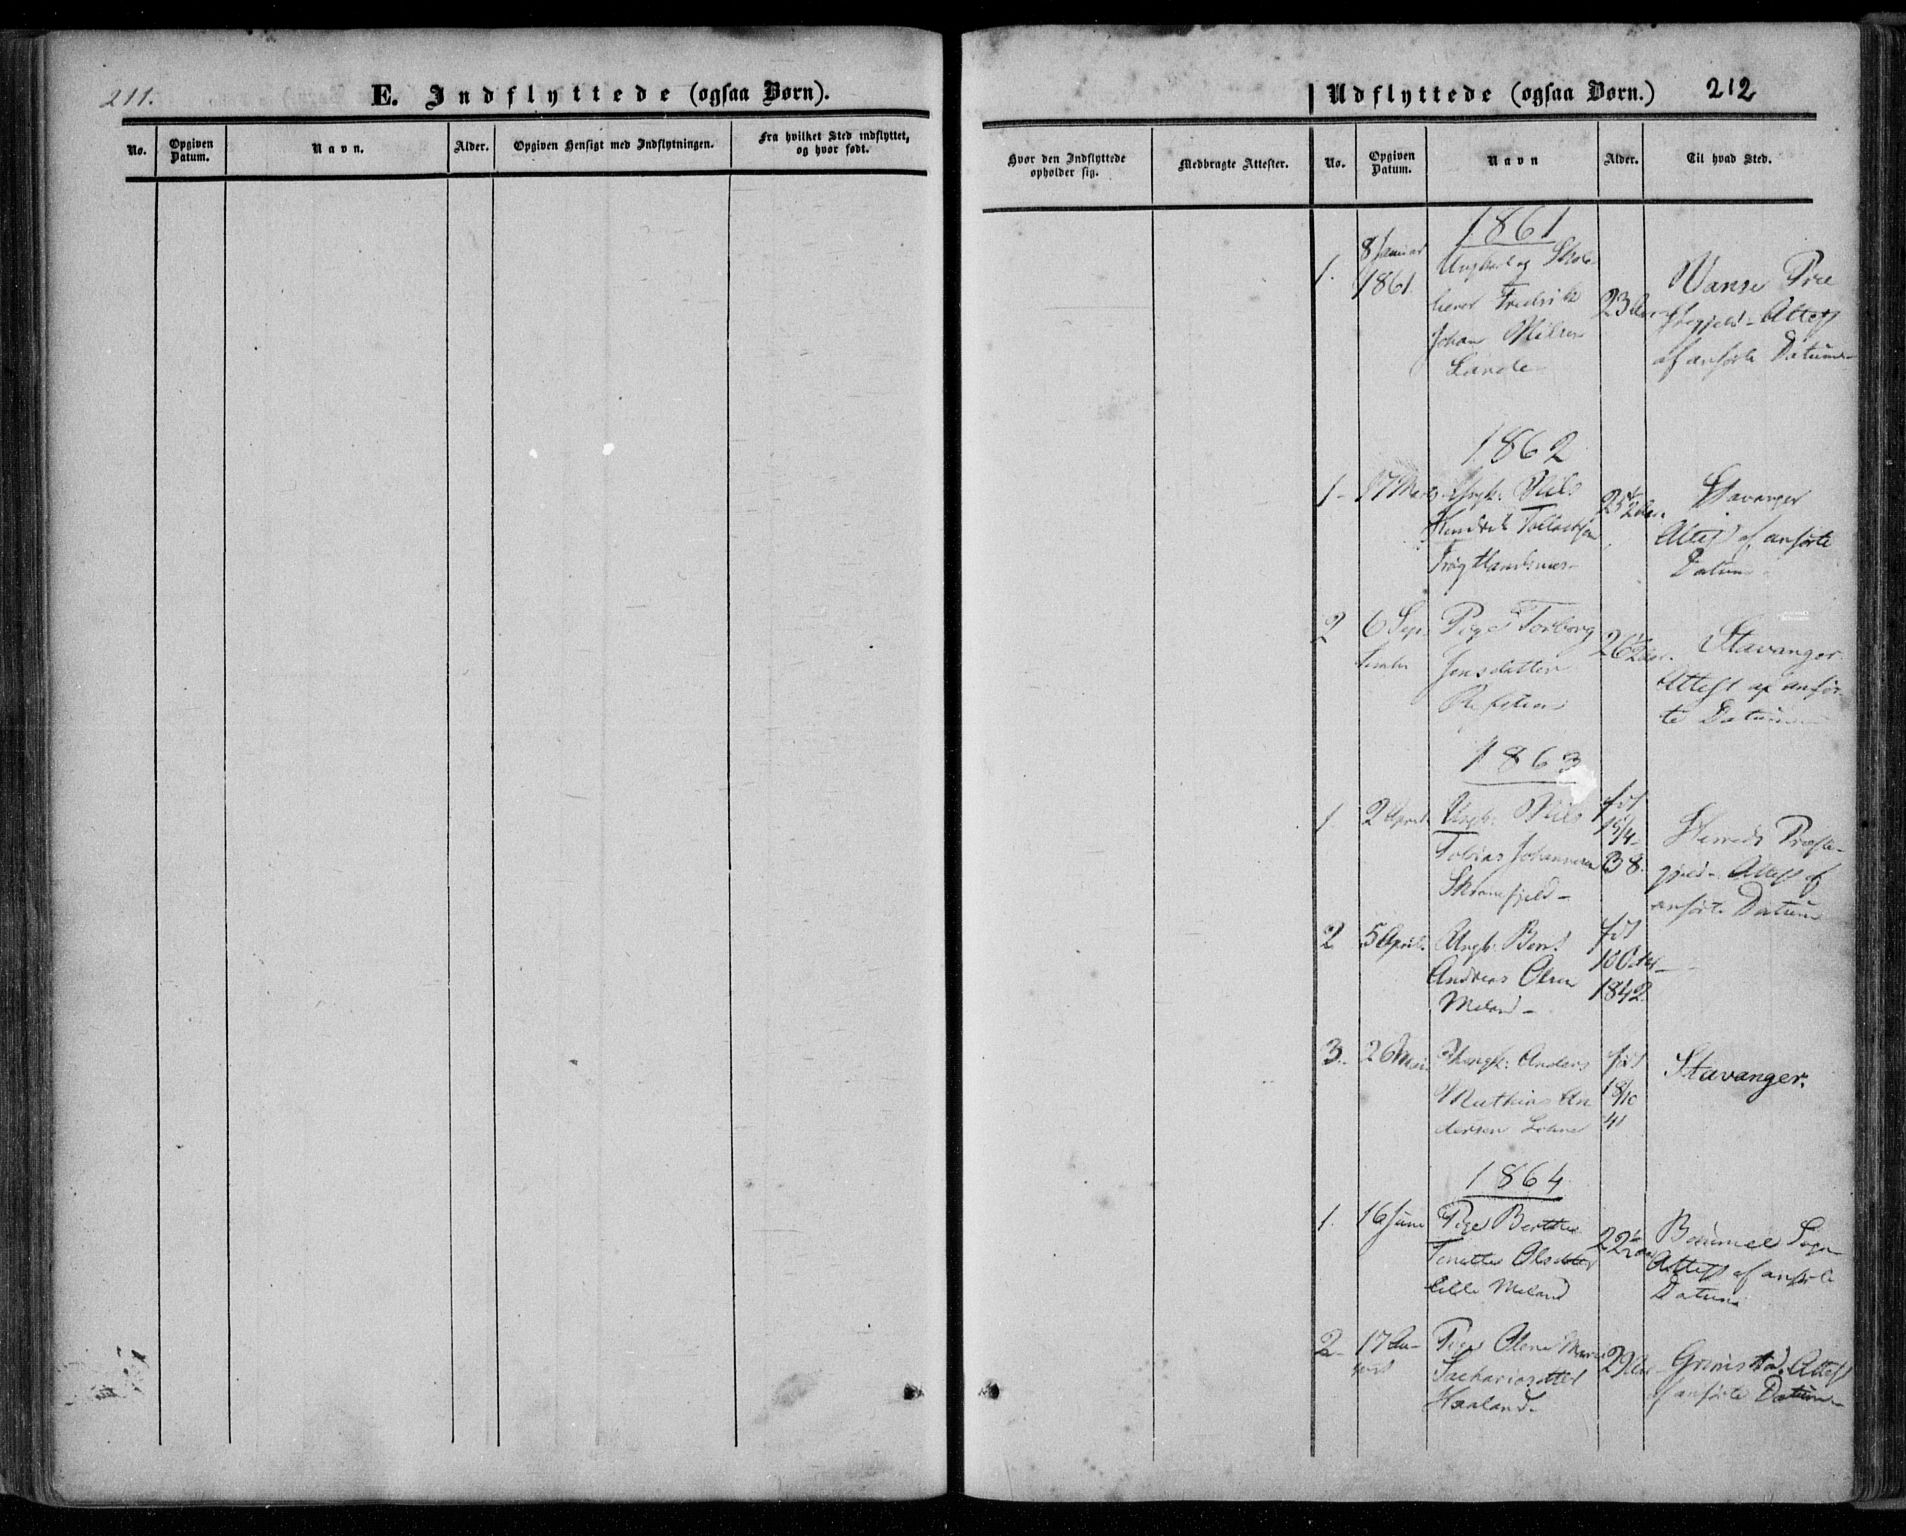 211.
E. Indflyttede (ogsaa Børn).
No.
Opgiven
Datum.
Navn.
Alder.
Opgiven Hensigt med Indflytningen.
Fra hvilket Sted indflyttet,
og hvor født.
Udflyttede (ogsaa Børn.)
212
Hvor den Indflyttede
opholder sig.
Medbragte Attester.
No.
Opgiven
Datum.
Navn
Alder.
Til hvad Sted.
1861
1.
8 Januar
1861
Ungkarl og Skole-
lærer Fredrik
Johan Nilsen
Lande
23 Aar
Vanse Præ
stegjeld - Attest
af anførte Datum
1862
1-
17 Marts
Ungk: Nils
Hendrik Tollaksen
25 1/2 Aar.
Stavanger
Attest af anførte
Datum
2
6 Sep-
tember
Pige Torborg
Jensdatter
Refsten
26 1/2 Aar.
Stavanger
Attest af anfør-
te Datum
1863
1.
2 April
Ungk: Nils
Tobias Johannesen
født
15/4-
38.
Herreds Præste-
gjeld - Attest af
anførte Datum
2
5 April.
Ungk: Bent
Andreas Olsen
Meland -
født
10 Octbr
1842
3.
26 Mai
Ungk: Anders
Mathias An
dersen
født
18/10
41
Stavanger.
1864
1.
16 Juni
Pige Berthe
Tonette Olsdatter
lille Meland
22 1/2 Aar
Bømmel Sogn
Attest af anførte
Datum
2-
17 Au-
gust
Pige Olene Marie
Sachariasdatter
Haaland -
29 Aar
Grimstad, Attest
af anførte Datum